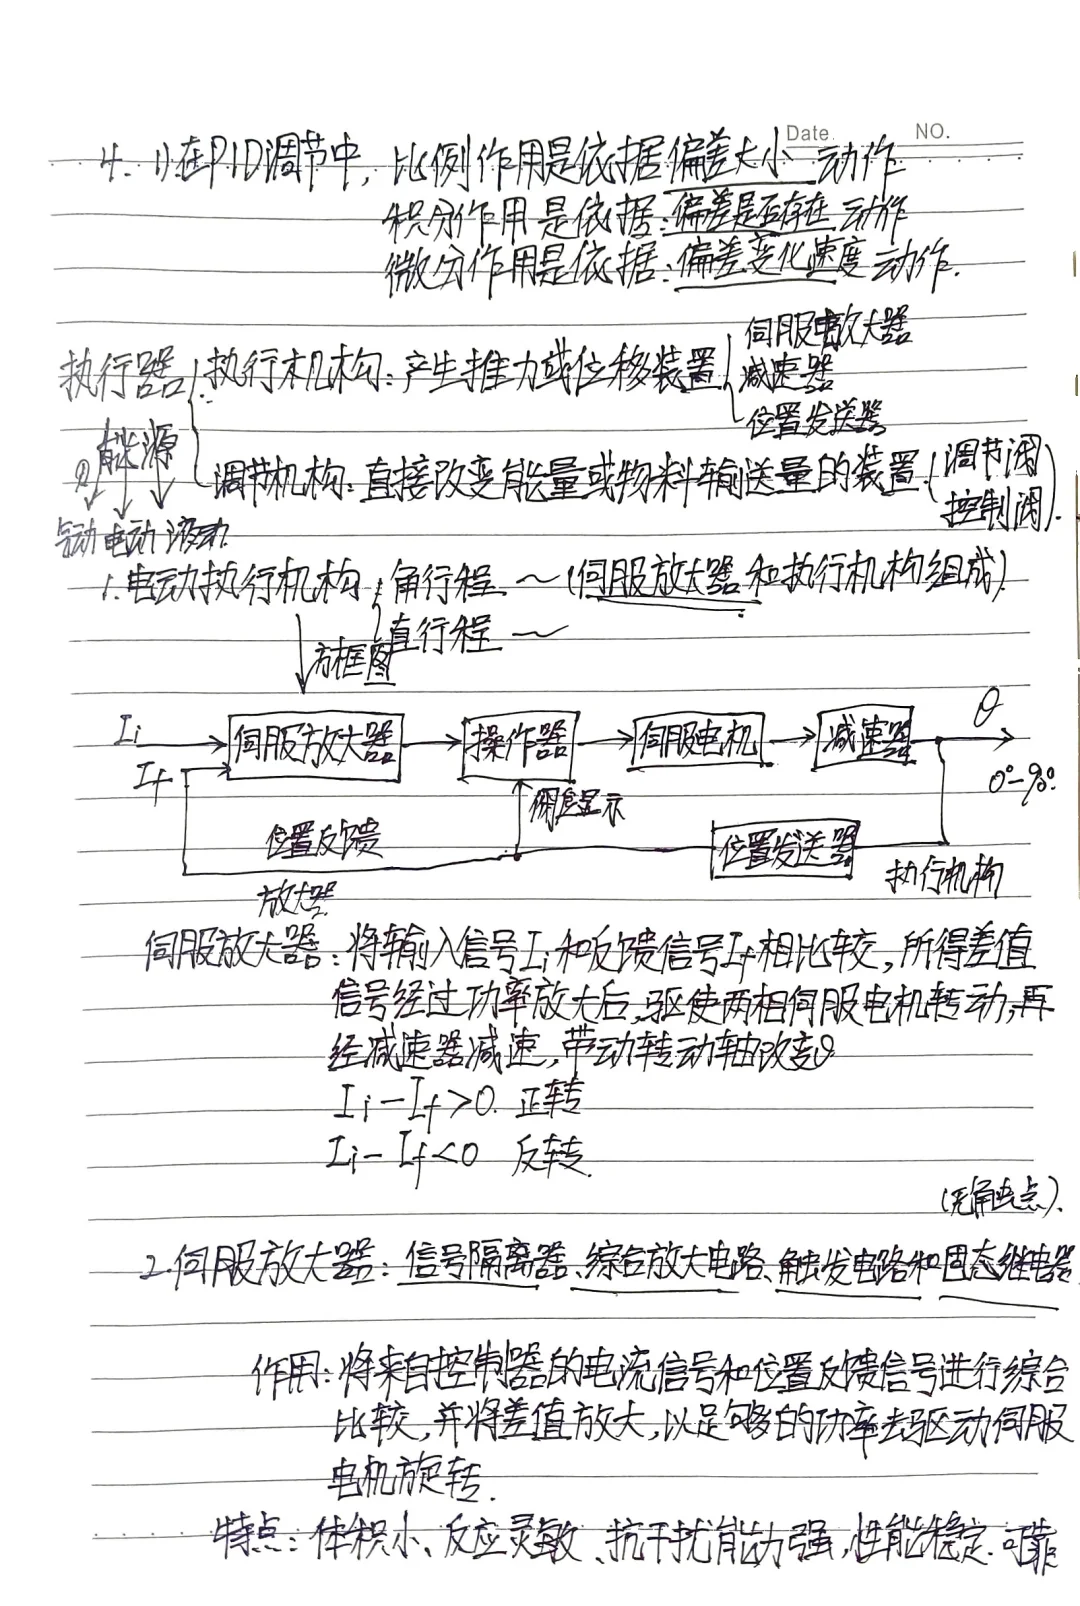 Date.
NO.
4. 1)在PID调节中, 比例作用是依据偏差大小 动作
积分作用是依据:偏差是否存在 动作
微分作用是依据:偏差变化速度 动作.
执行器
执行机构:产生推力或位移装置
伺服放大器
减速器
位置发送器
能源
调节机构:直接改变能量或物料输送量的装置(调节阀
控制阀).
气动 电动 液动
1.电动执行机构 角行程 ~ (伺服放大器和执行机构组成)
直行程 ~
方框图
Ii
伺服放大器
操作器
伺服电机
减速器
θ
If
0°-90°
显示
位置反馈
位置发送器
执行机构
放大器
伺服放大器:将输入信号Ii和反馈信号If相比较,所得差值
信号经过功率放大后,驱使两相伺服电机转动,再
经减速器减速,带动转动轴改变θ
Ii-If>0. 正转
Ii-If<0 反转.
(无触点).
2.伺服放大器:信号隔离器、综合放大电路、触发电路和固态继电器
作用:将来自控制器的电流信号和位置反馈信号进行综合
比较,并将差值放大,以足够的功率去驱动伺服
电机旋转.
特点:体积小、反应灵敏、抗干扰能力强,性能稳定.可靠